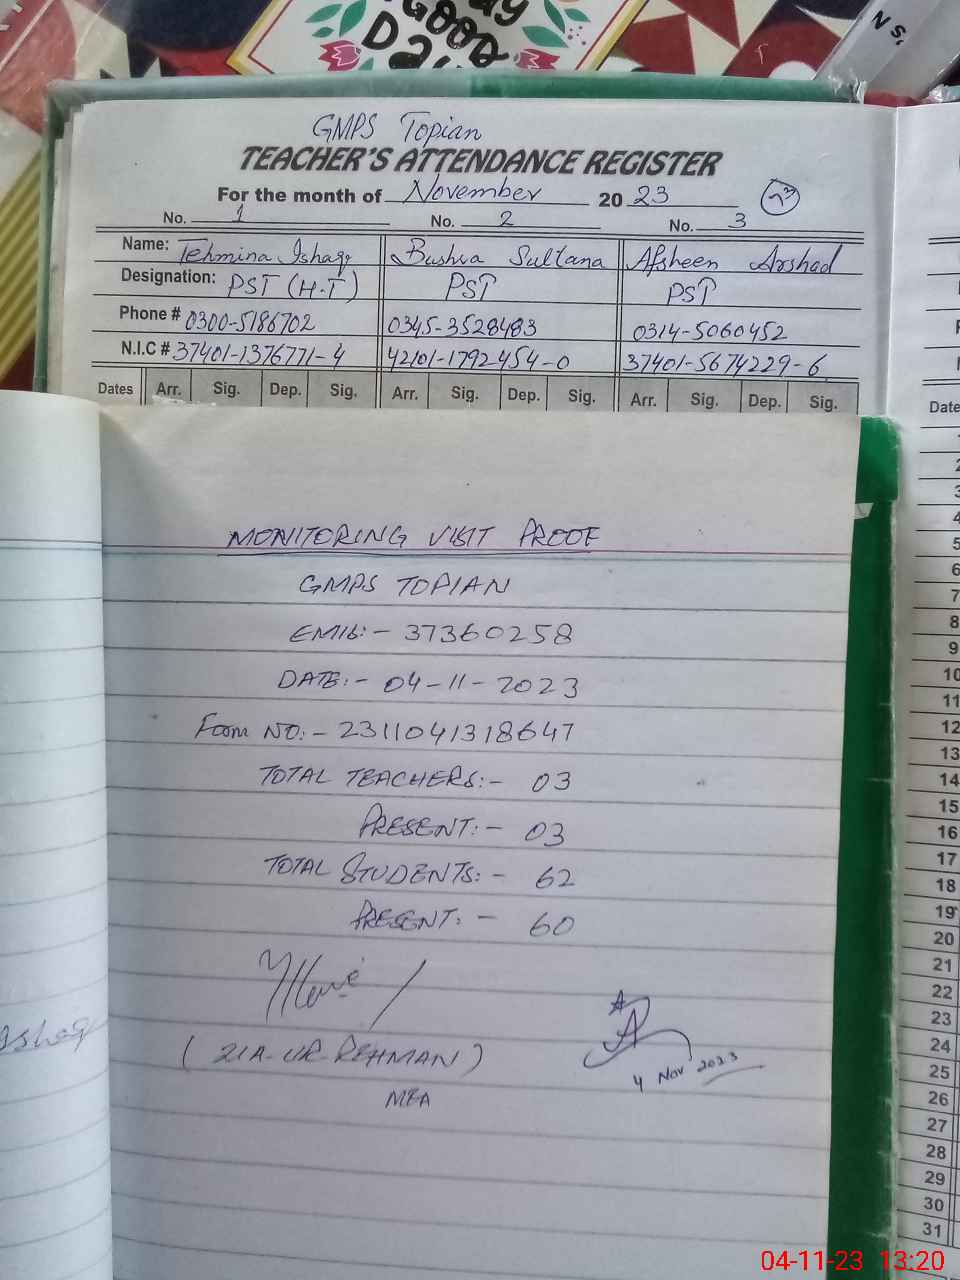 GOOD
Day
GMPS Topian
TEACHER'S ATTENDANCE REGISTER
For the month of November 2023 23
No. 1 No. 2 No. 3
Name: Tehmina Ishaq Bushra Sultana Afsheen Arshad
Designation: PST (H.T) PST PST
Phone # 0300-5186702 0345-3528483 0314-5060452
N.I.C # 37401-1376771-4 42101-1792454-0 37401-5674229-6
Dates Arr. Sig. Dep. Sig. Arr. Sig. Dep. Sig. Arr. Sig. Dep. Sig.
Date
MONITORING VISIT PROOF
GMPS TOPIAN
EMIS:- 37360258
DATE:- 04-11-2023
Form NO:- 2311041318647
TOTAL TEACHERS:- 03
PRESENT:- 03
TOTAL STUDENTS:- 62
PRESENT:- 60
(ZIA-UR-REHMAN)
MEA
4 Nov 2023
Ishaq
1
2
3
4
5
6
7
8
9
10
11
12
13
14
15
16
17
18
19
20
21
22
23
24
25
26
27
28
29
30
31
04-11-23 13:20